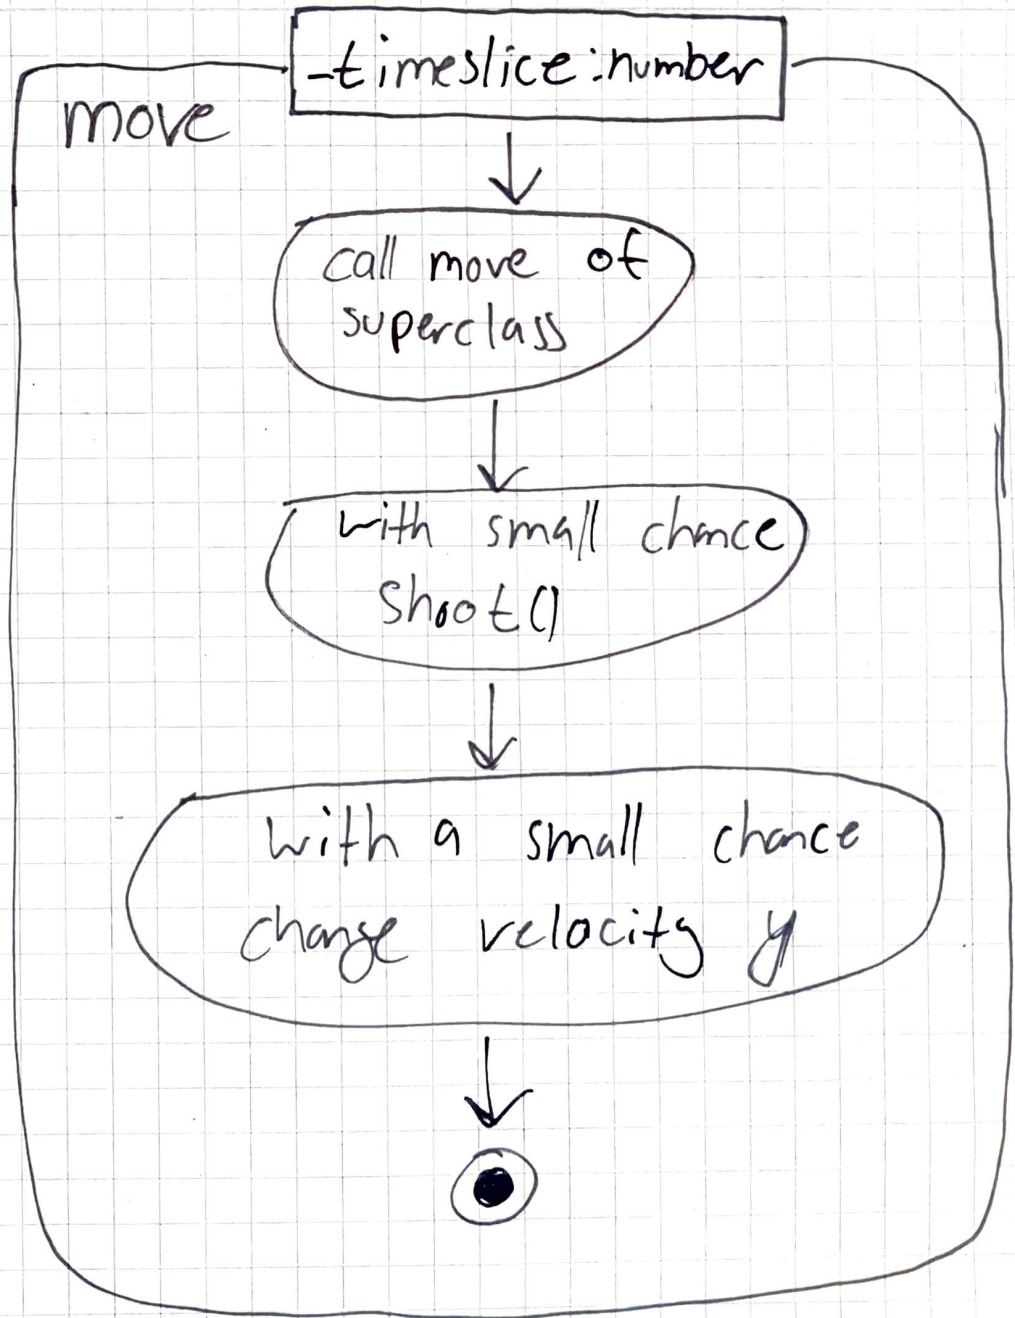 _timeslice:number
move
call move of
superclass
with small chance
shoot()
with a small chance
change velocity y